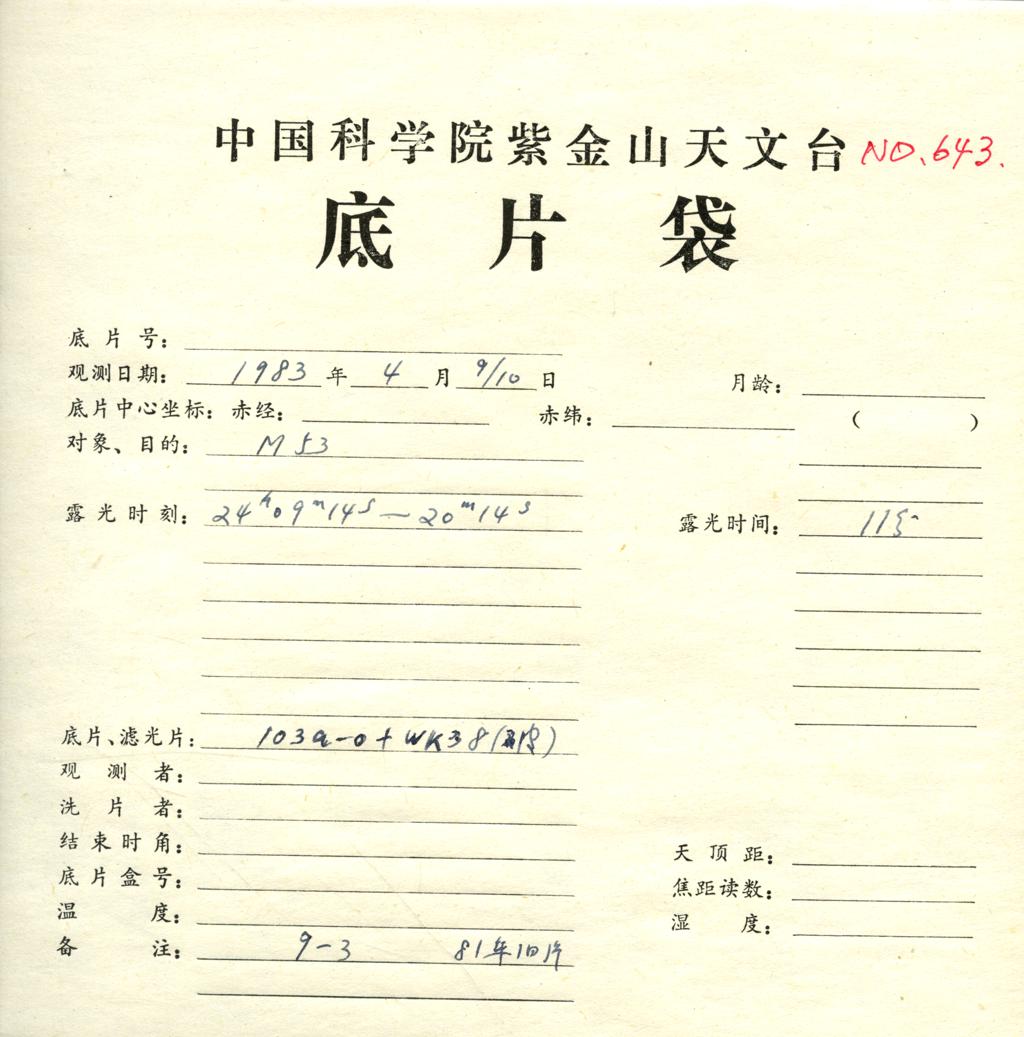 中国科学院紫金山天文台 NO.643.
底片袋
底片号：
观测日期：1983年4月9/10日 月龄：
底片中心坐标：赤经： 赤纬： （ ）
对象、目的：M 53
露光时刻：24ʰ09ᵐ14ˢ—20ᵐ14ˢ 露光时间：11分
底片、滤光片：103a-O+WK38
观测者：
洗片者：
结束时角： 天顶距：
底片盒号： 焦距读数：
温度： 湿度：
备注：9-3 81年旧片